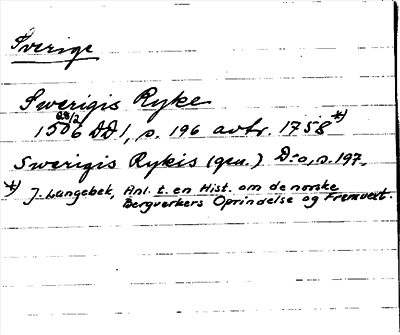 Sverige
Swerigis Ryke
28/2
1506 DD1, s. 196 avtr. 1758 *)
Swerigis Rykis (gen.) D:o, s. 197.
*) J. Langebek, Anl. t. en Hist. om de norske
Bergverkers Oprindelse og Fremvext.